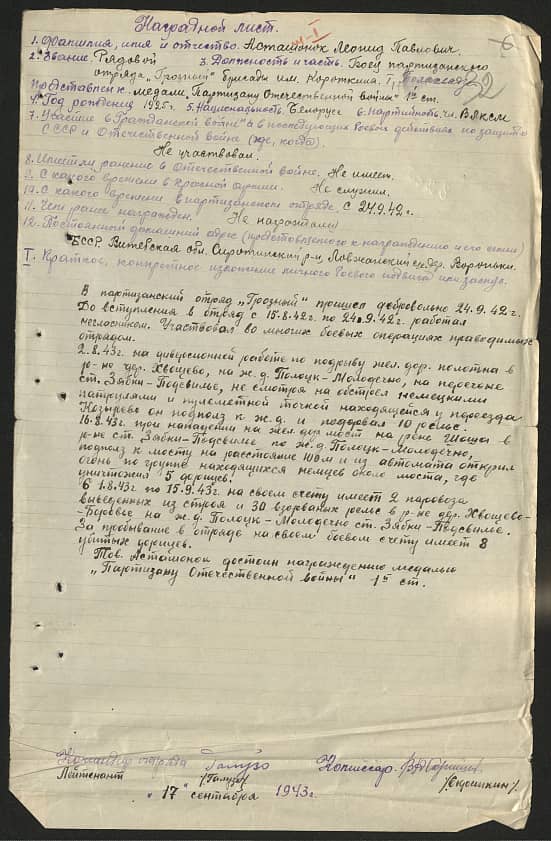 Наградной лист.
6
1. Фамилия, имя и отчество. Асташонок Леонид Павлович.
2. Звание. Рядовой 3. Должность и часть. Боец партизанского
отряда „Грозный" бригады им. Короткина,
Представлен к. медали „Партизану Отечественной войны" 1й ст.
4. Год рождения 1925 г. 5. Национальность Белорус 6. Партийность. чл. ВЛКСМ
7. Участие в Гражданской войне и в последующих боевых действиях по защите
СССР и Отечественной войне (где, когда).
Не участвовал.
8. Имеет ли ранение в Отечественной войне. Не имеет.
9. С какого времени в Красной армии. Не служил.
10. С какого времени в партизанском отряде. С 24.9.42 г.
11. Чем ранее награжден. Не награждался
12. Постоянный домашний адрес (представляемого к награждению и его семьи)
БССР Витебская обл. Сиротинский р-н. Ловжанский с/с дер. Вороньки.
I. Краткое, конкретное изложение личного боевого подвига или заслуг.
В партизанский отряд „Грозный" пришел добровольно 24.9.42 г.
До вступления в отряд с 15.8.42 г. по 24.9.42 г. работал
негласником. Участвовал во многих боевых операциях проводимых
отрядом.
2.8.43 г. на диверсионной работе по подрыву жел. дор. полотна в
р-не дер. Хвощево, на ж. д. Полоцк-Молодечно, на перегоне
ст. Зябки-Подсвилье, не смотря на обстрел немецкими
патрулями и пулеметной точкой находящейся у переезда
Козырево он подполз к ж. д. и подорвал 10 рельс.
16.8.43 г. при нападении на жел. дор. мост на реке Шоша в
р-не ст. Зябки-Подсвилье по ж. д. Полоцк-Молодечно,
подполз к мосту на расстояние 100 м и из автомата открыл
огонь по группе находящихся немцев около моста, где
уничтожил 5 фрицев.
С 1.8.43 г. по 15.9.43 г. на своем счету имеет 2 паровоза
выведенных из строя и 30 взорванных рельс в р-не дер. Хвощево-
-Боровые на ж. д. Полоцк-Молодечно ст. Зябки-Подсвилье.
За пребывание в отряде на своем боевом счету имеет 8
убитых фрицев.
Тов. Асташонок достоин награждению медалью
„Партизану Отечественной войны" 1й ст.
Командир отряда Галузо Комиссар.
Лейтенант /Галузо/
„17" сентября 1943 г.